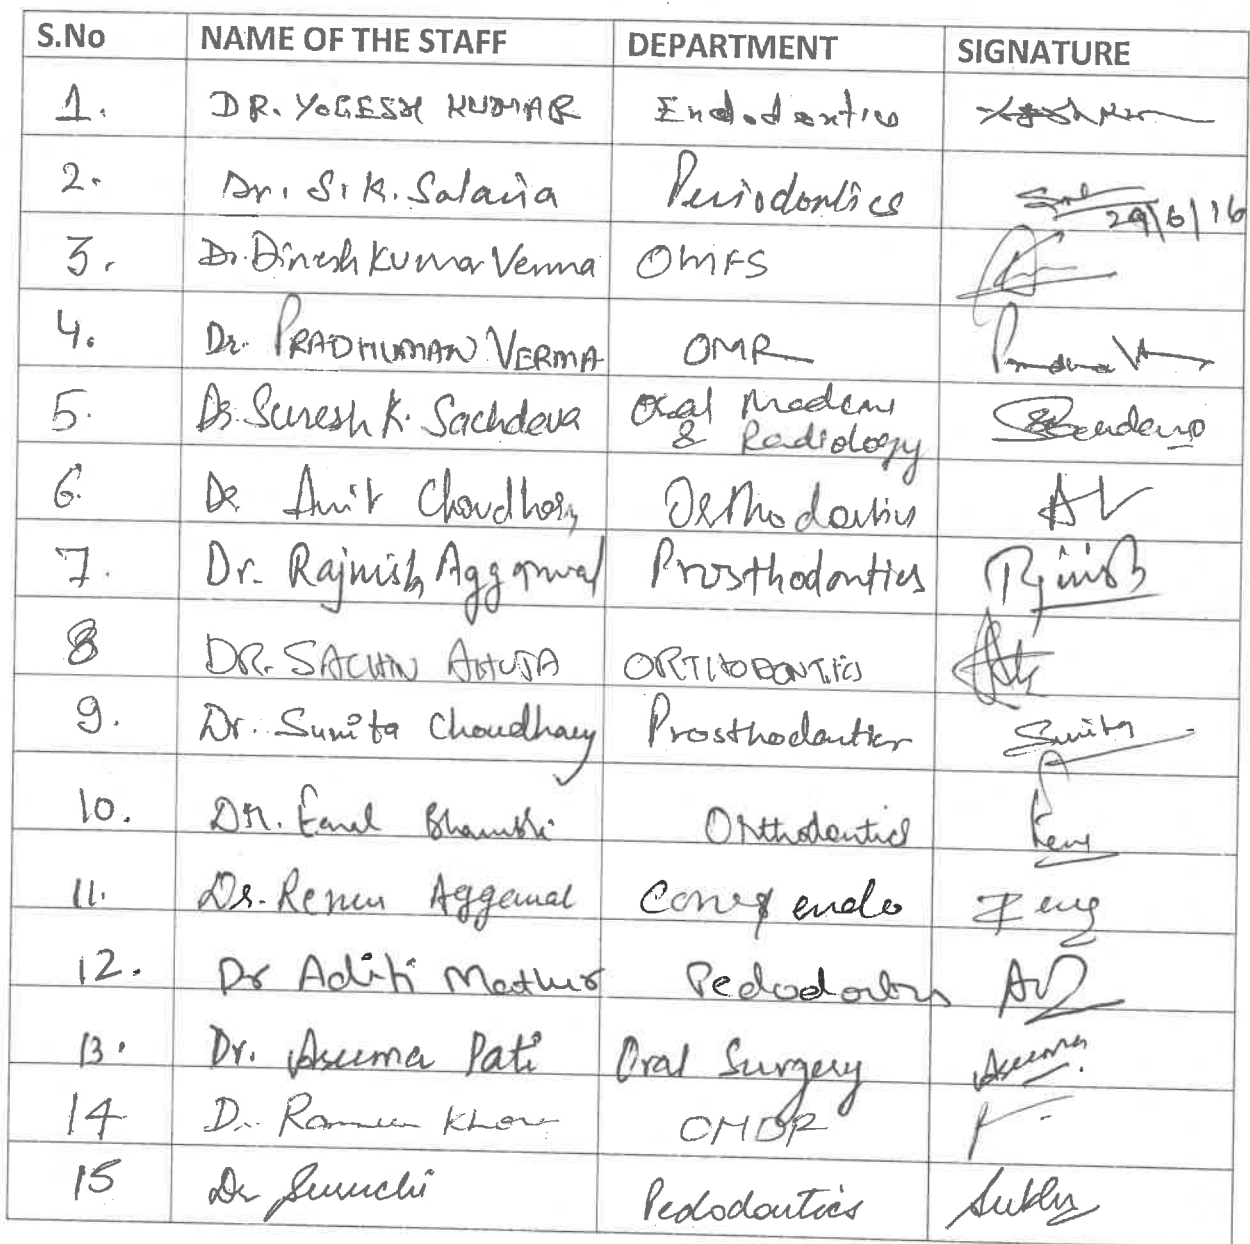 S.No NAME OF THE STAFF DEPARTMENT SIGNATURE
1. DR. YOGESH KUMAR Endodontics
2. Dr. S. K. Salaria Periodontics 29/6/16
3. Dr. Dinesh Kumar Verma OMFS
4. Dr. PRADHUMAN VERMA OMR
5. Dr. Suresh K. Sachdeva Oral
& Radiology
6. Dr Amit Choudhary Orthodontics
7. Dr. Rajnish Aggarwal Prosthodontics Rajnish
8 DR. SACHIN AHUJA ORTHODONTICS
9. Dr. Sunita Choudhary Prosthodontics Sunita
10. DR. Bhambri Orthodontics
11. Dr. Renu Aggarwal Cons & endo Renu
12. Dr Aditi Mathur Pedodontics
13. Dr. Asuma Pati Oral Surgery Asuma
14 Dr. OMDR
15 Dr Suruchi Pedodontics